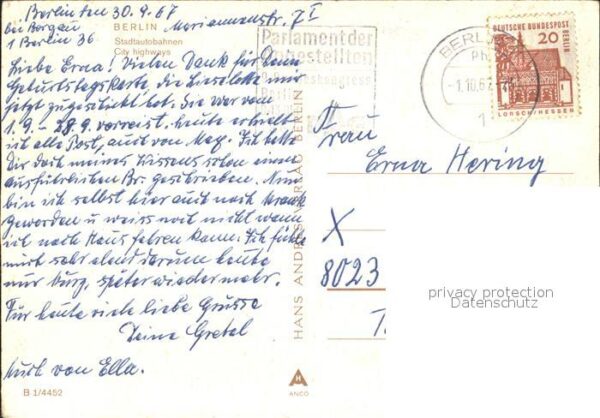 Berlin den 30.9.67
bei Borgau Mariannenstr. 7 I
1 Berlin 36
BERLIN
Stadtautobahnen
City highways
Liebe Erna! Vielen Dank für Deine
Geburtstagskarte, die Lieselotte mir
jetzt zugeschickt hat. Sie war vom
1.9. – 28.9. verreist. heute erhielt
ich alle Post, auch von Meg. Ich hatte
Dir doch meines Wissens schon einen
ausführlichen Br. geschrieben. Nun
bin ich selbst hier auch noch krank
geworden u weiss noch nicht wann
ich nach Haus fahren kann. Ich fühle
mich sehr elend darum heute
nur kurz, später wieder mehr.
Für heute viele liebe Grüsse
Deine Gretel
Auch von Ella.
B 1/4452
HANS ANDRES VERLAG BERLIN
ANCO
Parlament der
Angestellten
Berlin
BERLIN
-1.10.67
1
DEUTSCHE BUNDESPOST
BERLIN
20
LORSCH/HESSEN
Frau
Erna Hering
X
8023
privacy protection
Datenschutz